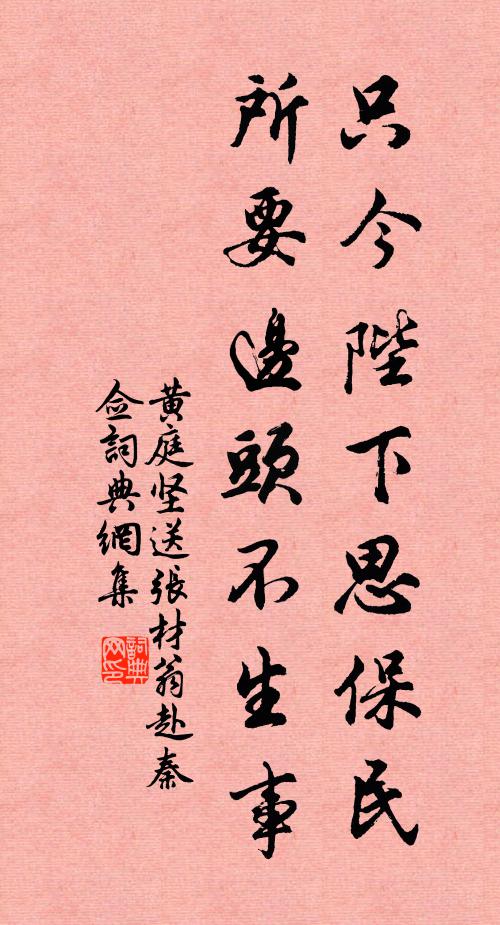 只今陛下思保民
所要邊頭不生事
黄庭坚送張材翁赴秦
佥詞典網集
詞典網印